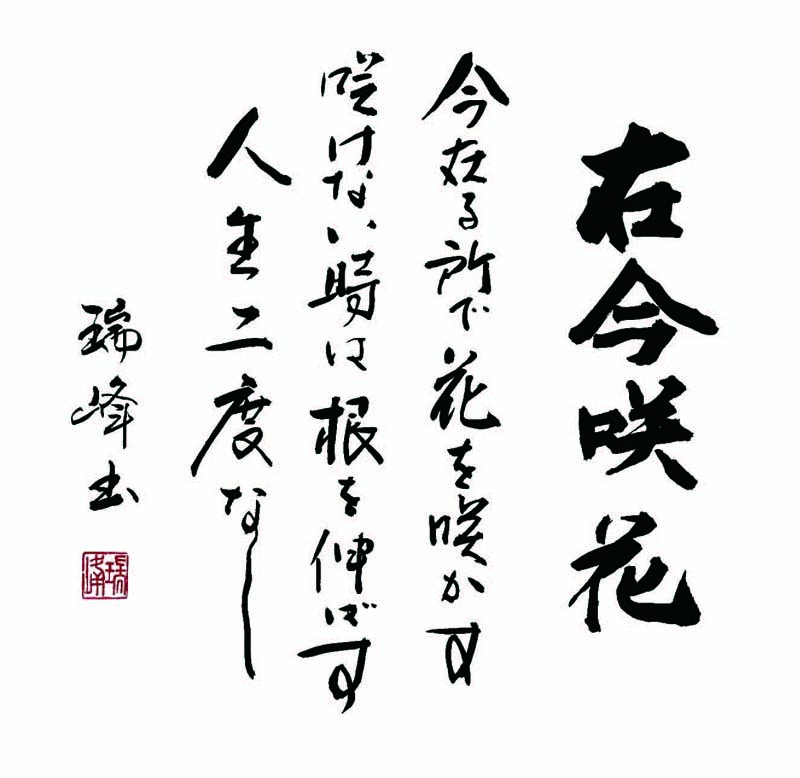 在今咲花
今在る所で花を咲かす
咲けない時は根を伸ばす
人生二度なし
瑞峰书
瑞峰